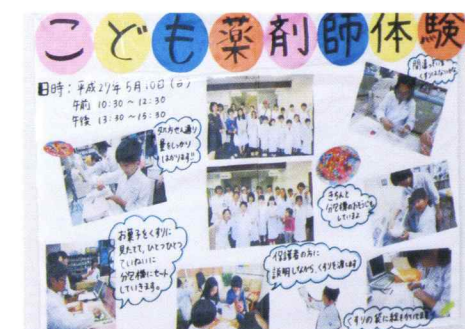 こども薬剤師体験
日時:平成27年5月10日(日)
午前 10:30～12:30
午後 13:30～15:30
処方せん通り
量をしっかり
はかります!!
きちんと
分包機のおそうじも
しているよ
お菓子をくすりに
見たてて、ひとつひとつ
ていねいに
分包機にセット
していきます。
保護者の方に
説明しながら、くすりを渡します